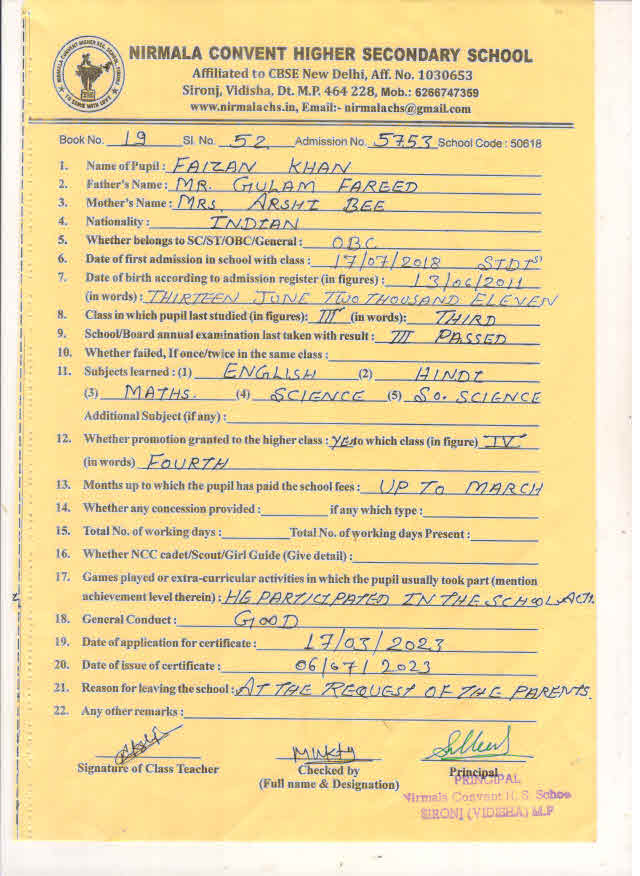 NIRMALA CONVENT HIGHER SECONDARY SCHOOL
Affiliated to CBSE New Delhi, Aff. No. 1030653
Sironj, Vidisha, Dt. M.P. 464 228, Mob.: 6266747359
www.nirmalachs.in, Email:- nirmalachs@gmail.com
Book No. 19 Sl. No. 52 Admission No. 5753 School Code : 50618
1. Name of Pupil : FAIZAN KHAN
2. Father's Name : MR. GULAM FAREED
3. Mother's Name : MRS. ARSHI BEE
4. Nationality : INDIAN
5. Whether belongs to SC/ST/OBC/General : OBC
6. Date of first admission in school with class : 17/07/2018 STD I st
7. Date of birth according to admission register (in figures) : 13/06/2011
(in words) : THIRTEEN JUNE TWO THOUSAND ELEVEN
8. Class in which pupil last studied (in figures): III (in words): THIRD
9. School/Board annual examination last taken with result : III PASSED
10. Whether failed, If once/twice in the same class :
11. Subjects learned : (1) ENGLISH (2) HINDI
(3) MATHS. (4) SCIENCE (5) SO. SCIENCE
Additional Subject (if any) :
12. Whether promotion granted to the higher class : YES to which class (in figure) IV
(in words) FOURTH
13. Months up to which the pupil has paid the school fees : UP TO MARCH
14. Whether any concession provided : if any which type :
15. Total No. of working days : Total No. of working days Present :
16. Whether NCC cadet/Scout/Girl Guide (Give detail) :
17. Games played or extra-curricular activities in which the pupil usually took part (mention
achievement level therein) : HE PARTICIPATED IN THE SCHOOL ACTI.
18. General Conduct : GOOD
19. Date of application for certificate : 17/03/2023
20. Date of issue of certificate : 06/07/2023
21. Reason for leaving the school : AT THE REQUEST OF THE PARENTS.
22. Any other remarks :
Signature of Class Teacher Checked by Principal
(Full name & Designation)
PRINCIPAL
Nirmala Convent H. S. Schoo
SIRONJ (VIDISHA) M.P